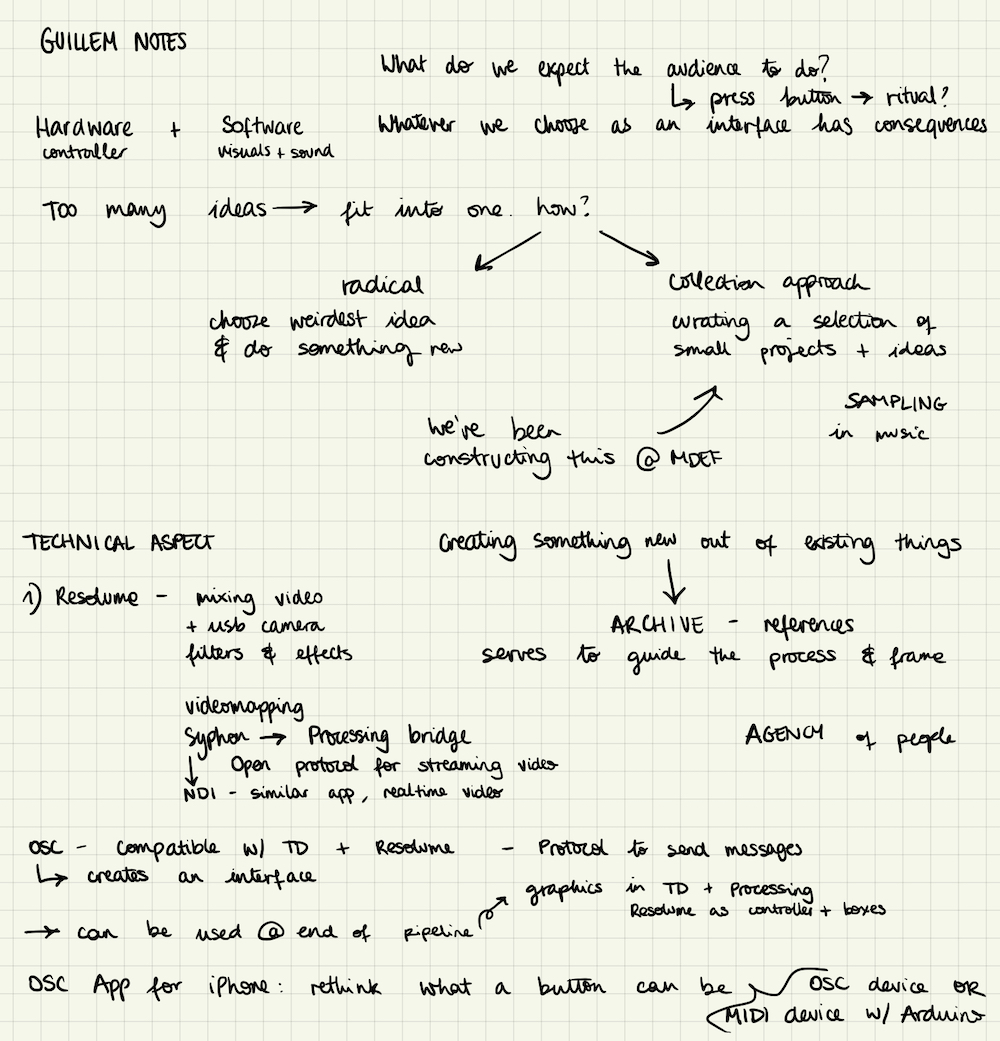 GUILLEM NOTES
What do we expect the audience to do?
↳ press button → ritual?
Hardware + Software
controller visuals + sound
Whatever we choose as an interface has consequences
Too many ideas → fit into one. how?
radical
choose weirdest idea
& do something new
collection approach
curating a selection of
small projects + ideas
we've been
constructing this @ MDEF
SAMPLING
in music
TECHNICAL ASPECT
1) Resolume - mixing video
+ usb camera
filters & effects
Creating something new out of existing things
ARCHIVE - references
serves to guide the process & frame
videomapping
Syphon → Processing bridge
Open protocol for streaming video
↓ NDI - similar app, realtime video
AGENCY of people
OSC - Compatible w/ TD + Resolume - Protocol to send messages
↳ creates an interface
graphics in TD + Processing
Resolume as controller + boxes
→ can be used @ end of pipeline
OSC App for iPhone: rethink what a button can be
OSC device OR
MIDI device w/ Arduino